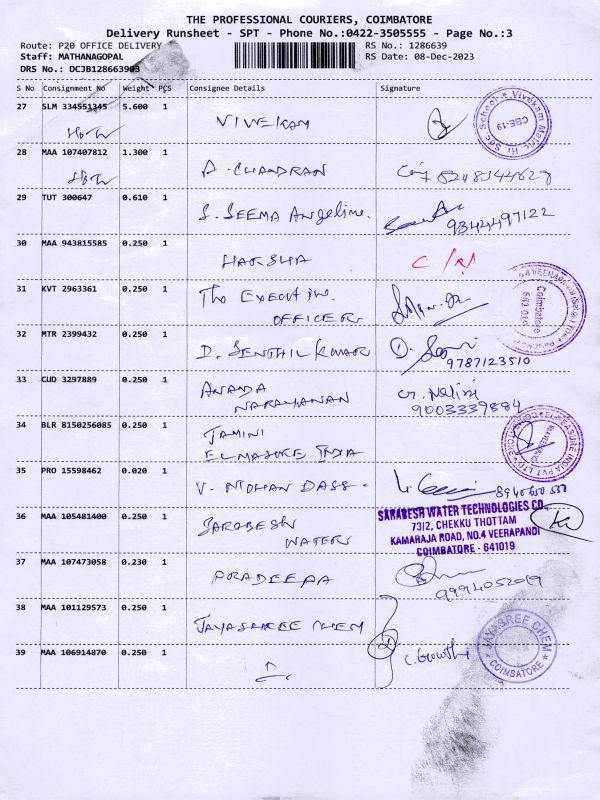 THE PROFESSIONAL COURIERS, COIMBATORE
Delivery Runsheet - SPT - Phone No.:0422-3505555 - Page No.:3
Route: P20 OFFICE DELIVERY RS No.: 1286639
Staff: MATHANAGOPAL RS Date: 08-Dec-2023
DRS No.: DCJB128663903
S No Consignment No Weight PCS Consignee Details Signature
27 SLM 334551345 5.600 1 VIVVEKAM
Vivekam Matric. Hr. Sec School
CBE-19
28 MAA 107407812 1.300 1 A. CHANDRAN
29 TUT 300647 0.610 1 S. SEEMA Angeline. 9344497122
30 MAA 943815585 0.250 1 HARSHA
31 KVT 2963361 0.250 1 The Executive
OFFICER
Coimbatore
32 MTR 2399432 0.250 1 D. SENTHIL KUMAR
9787123510
33 CUD 3297889 0.250 1 ANANDA
NARAYANAN
G. Nalini
9003339884
34 BLR 8150256085 0.250 1 JAMINI
ELMAJURE INDIA
35 PRO 15598462 0.020 1 V. MOHAN DASS
36 MAA 105481400 0.250 1 SARABESH
WATER
SARABESH WATER TECHNOLOGIES CO.,
73/2, CHEKKU THOTTAM
KAMARAJA ROAD, NO.4 VEERAPANDI
COIMBATORE - 641019
37 MAA 107473058 0.230 1 PRADEEPA
9994052019
38 MAA 101129573 0.250 1 JAYASHREE CHEM
39 MAA 106914870 0.250 1
JAYASREE CHEM
COIMBATORE